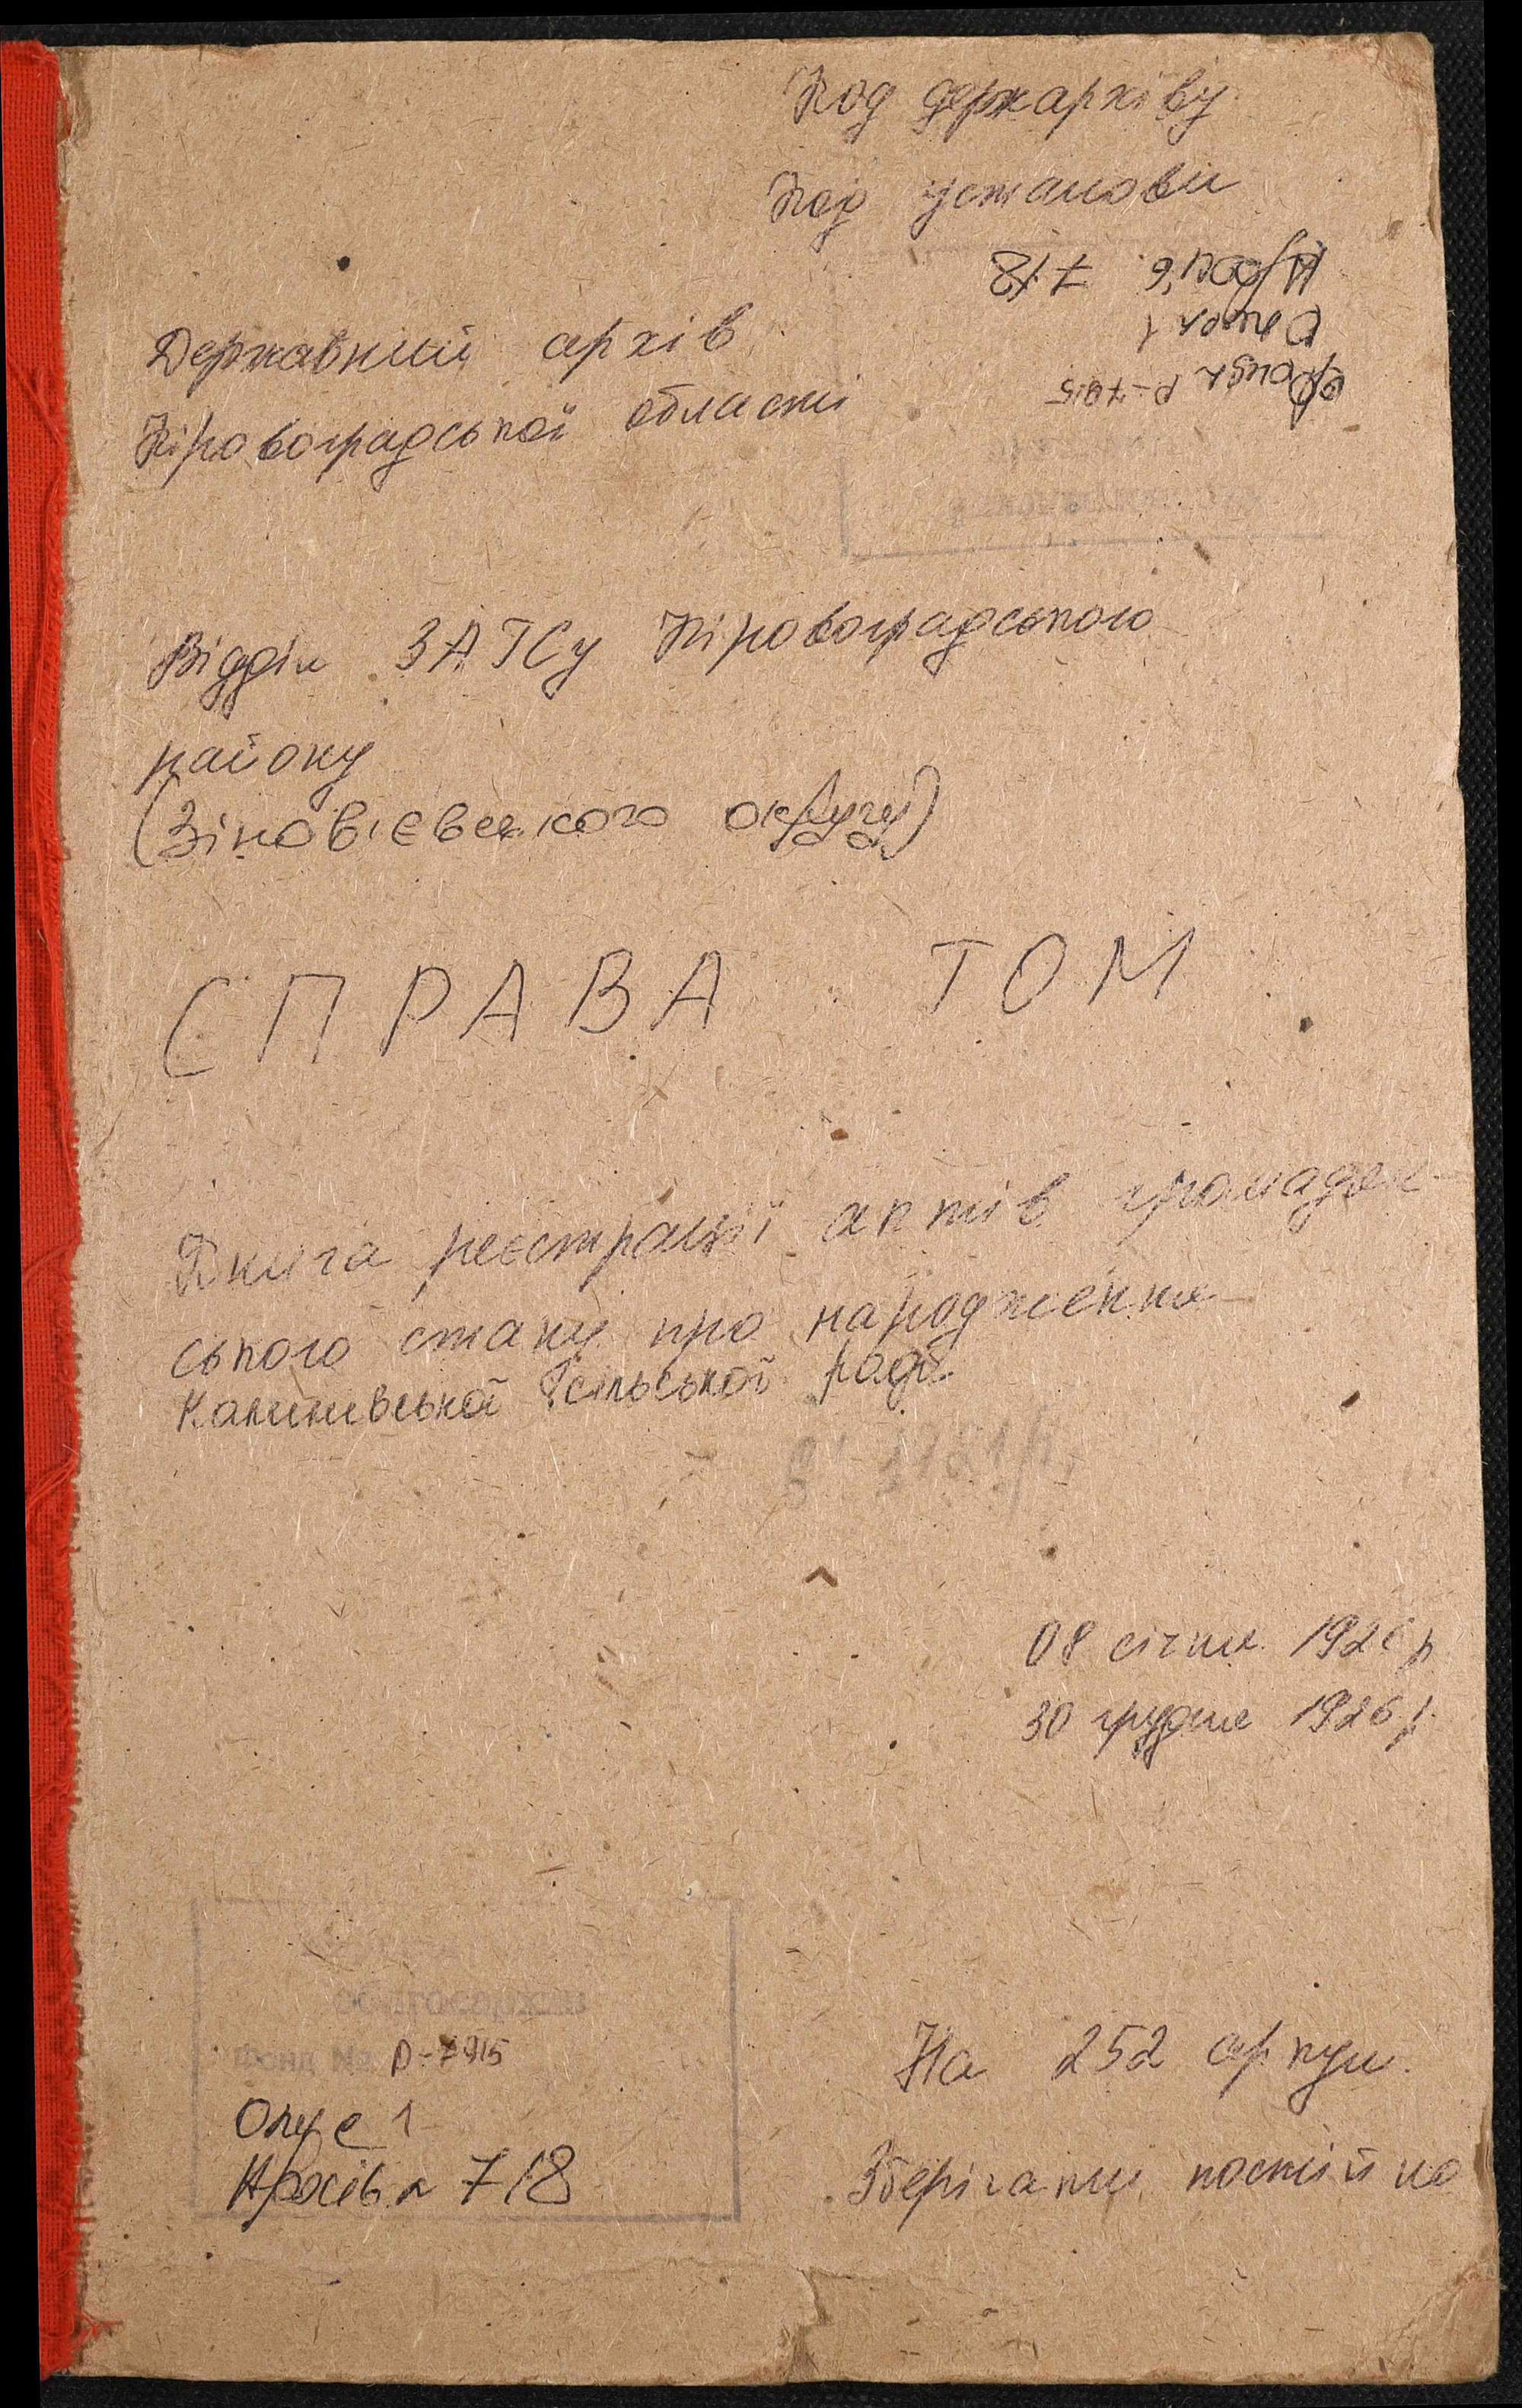 Код держархіву
Код установи
Арх. 718
Опись 1
Фонд Р-7915
Державний архів
Кіровоградської області
Відділ ЗАГСу Кіровоградського
району
(Зінов'євського округу)
СПРАВА ТОМ
Книга реєстрації актів громадян-
ського стану про народження
Калинівської сільської ради
08 січня 1926 р
30 грудня 1926 р.
облгосархив
Фонд № Р-7915
Опис 1
718
На 252 аркуш.
Зберігати постійно